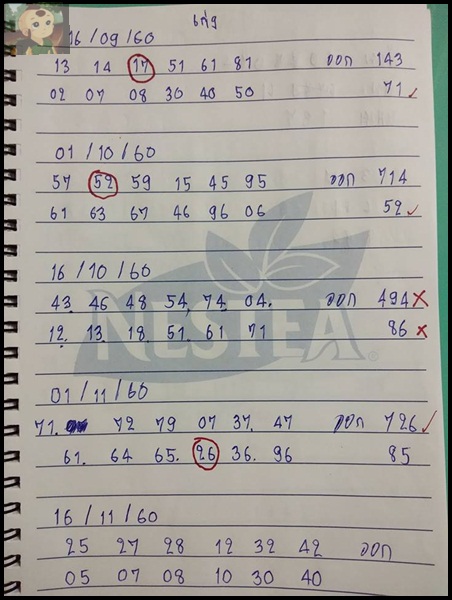 เก๋ง
16 / 09 / 60
13 14 17 51 61 81 ออก 143
02 07 08 30 40 50 71 ✓
01 / 10 / 60
57 52 59 15 45 95 ออก 714
61 63 67 46 96 06 52 ✓
16 / 10 / 60
43. 46 48 54, 74, 04. ออก 494 ✗
12. 13. 18. 51. 61 71 86 ✗
NESTEA®
01 / 11 / 60
71. 72 79 07 37. 47 ออก 726 ✓
61. 64 65. 26 36. 96 85
16 / 11 / 60
25 27 28 12 32 42 ออก
05 07 08 10 30 40